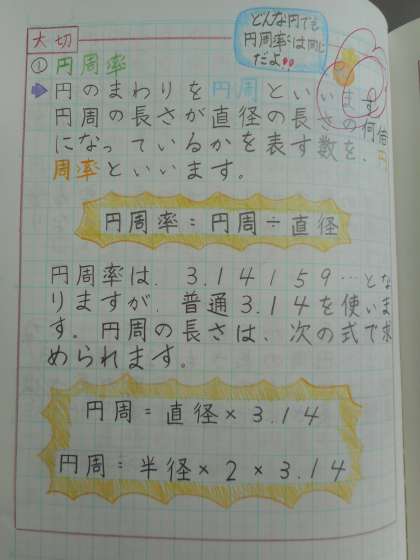 大切
どんな円でも
円周率は同じ
だよ!!
① 円周率
円のまわりを円周といいます。
円周の長さが直径の長さの何倍
になっているかを表す数を、円
周率といいます。
円周率=円周÷直径
円周率は、3.14159…とな
りますが、普通3.14を使いま
す。円周の長さは、次の式で求
められます。
円周=直径×3.14
円周=半径×2×3.14